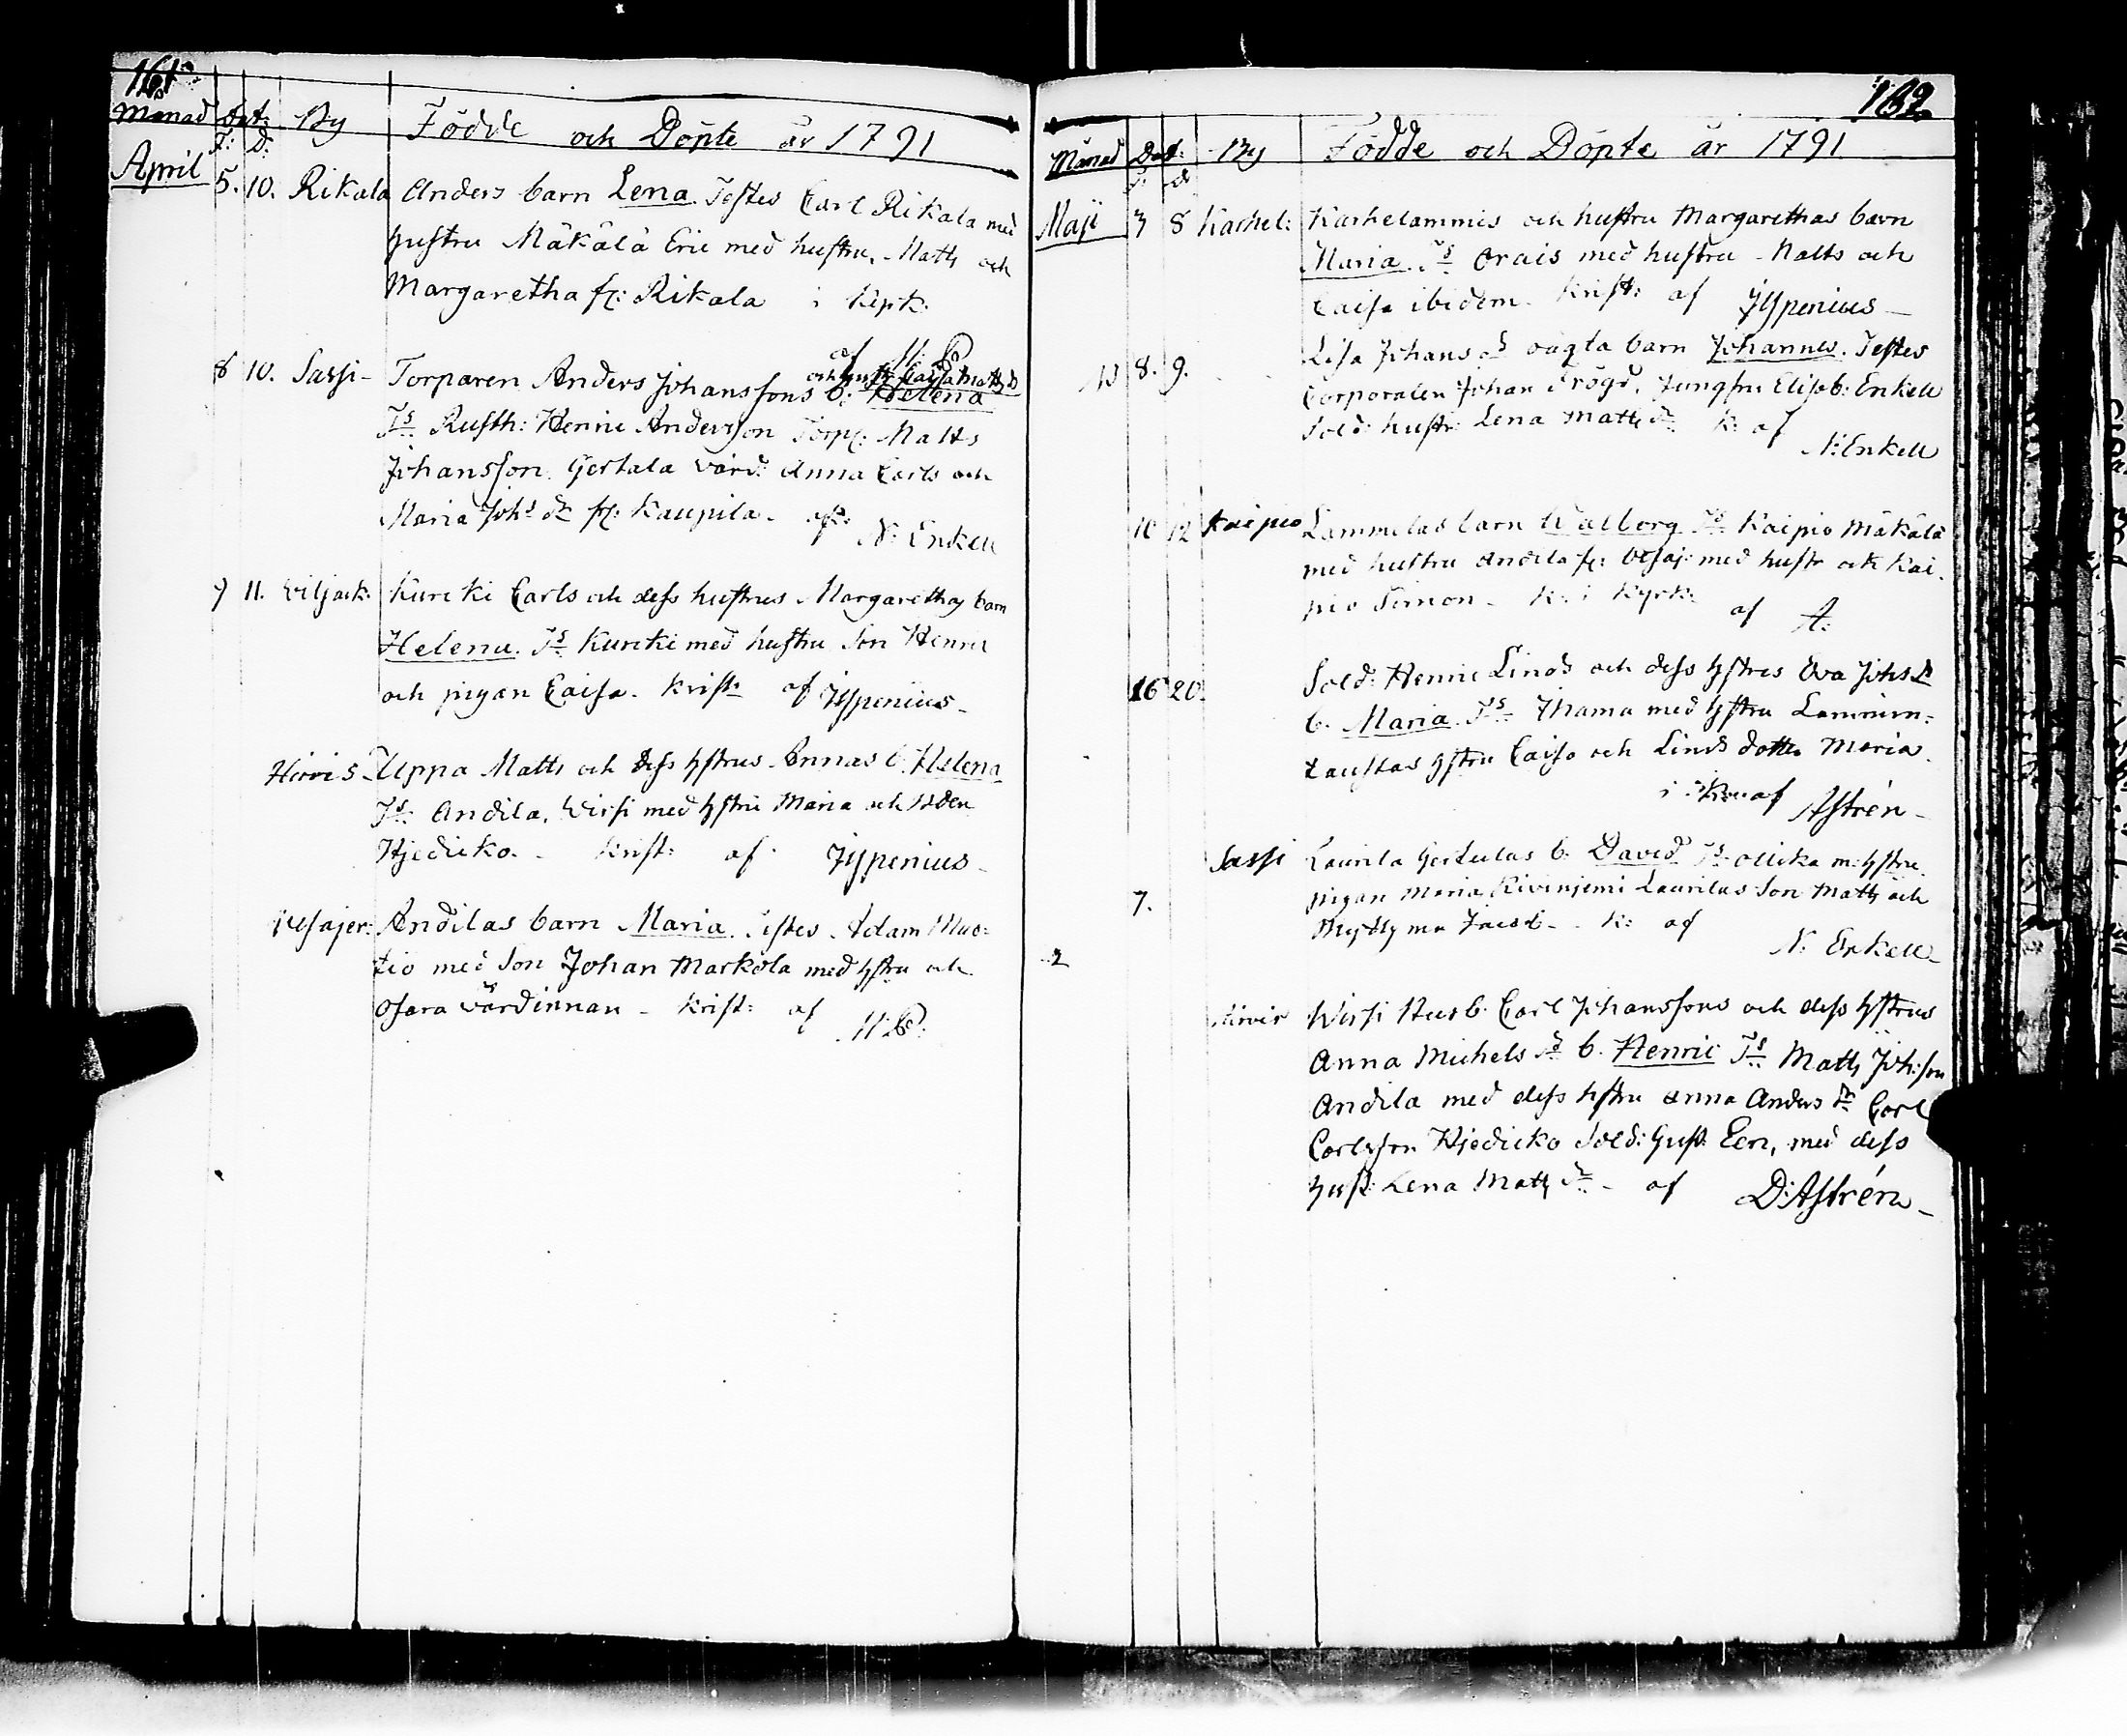 161
Månad Dat: By Födde och Döpte år 1791
F: D:
April 5. 10. Rikala Anders barn Lena. Testes Carl Rikala med
hustru Mäkälä Eric med hustru. Matts och
Margaretha fr: Rikala i Kyrk:
af
8 10. Sassi- Torparen Anders Johanssons b: Helena
och hustr Caisa Matts D
Ts Rusth: Henric Andersson Torp: Matts
Johansson. Gertala värd: Anna Carls och
Maria Johs dr fr: Kaupila. af N: Enkell
9 11. Viljack: Kurcki Carls och dess hustrus Margarethas barn
Helena. Ts Kurcki med hustru Son Henric
och pigan Caisa. Krist: af Jypenius-
Hirvis- Uppa Matts och dess hstrus Annas b. Helena
Ts Andila, Wirsi med hstru Maria och
Hjedicko. - Krist: af Jypenius-
Andilas barn Maria. Testes Adam
tio med Son Johan Markola med hstru och
Ojara värdinnan - Krist: af
162
Månad Dat: By Födde och Döpte år 1791
Maji 3 8 Karhel: Karhelammis och hustru Margarethas barn
Maria. Ts Orais med hustru - Matts och
Caisa ibidem. Krist: af Jypenius-
8. 9. Lisa Johans dr oägta barn Johannes. Testes
Corporalen Johan Frögd. Jungfru Elisab: Enkell
Sold: hustr: Lena Matts dr K: af
N: Enkell
10 12 Kaipio Lammilas barn Walborg Ts Kaipio Mäkälä
med hustru Andila fr: med hustr och Kai-
pio Simon - K: i Kyrk: af A:
16 20. Sold: Henric Linds och dess hstrus Eva Johs D
b. Maria. Ts Mama med hstru Lammin-
taustas hstru Caisa och Linds dotter Maria.
i af Astrén-
Sassi Laurila Gertulas b. David Ts Ollika m: hstru
7. pigan Maria Kivinjemi Laurilas Son Matts och
- K: af
N: Enkell-
2
Hirvis Wirsi Husb: Carl Johanssons och dess hstrus
Anna Michels dr b. Henric Ts Matts Joh:son
Andila med dess hstru Anna Anders dr Carl
Carlsson Hjedicko Sold: Gust: Een, med dess
hust: Lena Matts dr - af D: Astrén-